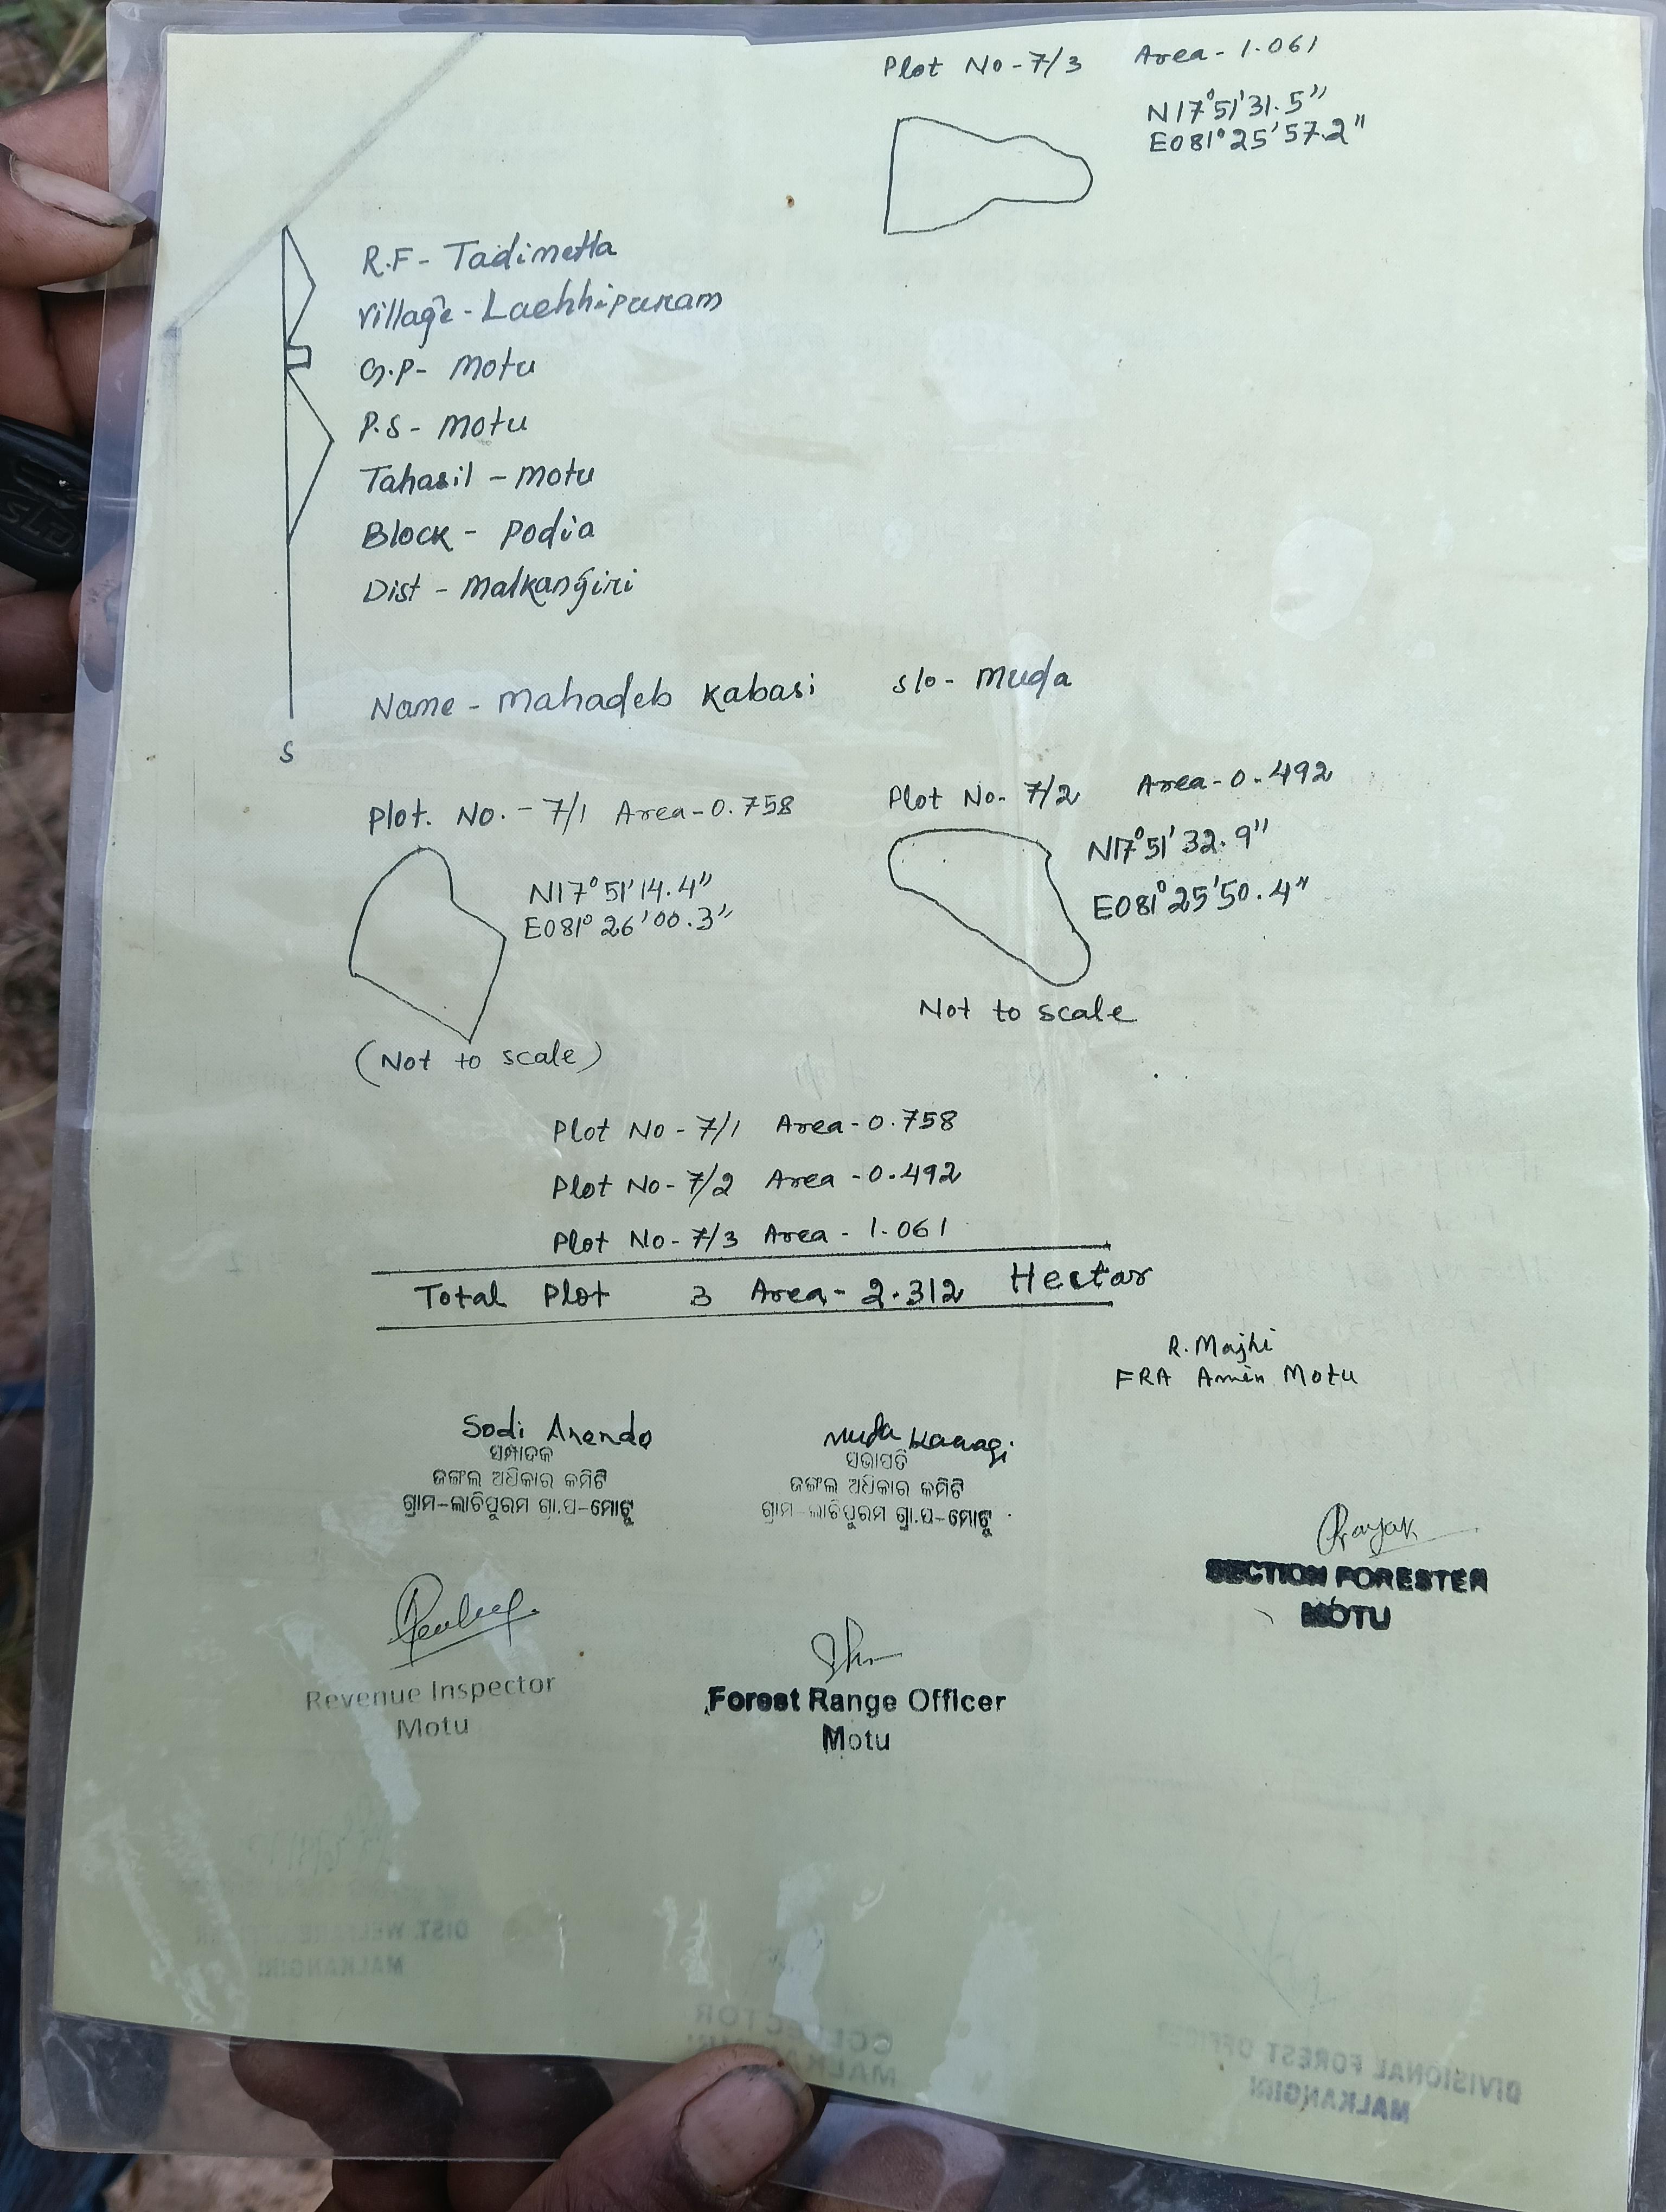 Plot No-7/3 Area-1.061
N17°51'31.5"
E081°25'57.2"
R.F- Tadimetla
Village- Lachhipuram
G.P- Motu
P.S- Motu
Tahasil - Motu
Block - Podia
Dist - Malkangiri
Name - Mahadeb Kabasi S/o- Muda
S
Plot. No. - 7/1 Area-0.758
N17°51'14.4"
E081°26'00.3"
(Not to scale)
Plot No- 7/2 Area-0.492
N17°51'32.9"
E081°25'50.4"
Not to scale
Plot No- 7/1 Area-0.758
Plot No- 7/2 Area-0.492
Plot No- 7/3 Area- 1.061
Total Plot 3 Area- 2.312 Hectar
R. Majhi
FRA Amin Motu
Sodi Anando
ସମ୍ପାଦକ
ଜଙ୍ଗଲ ଅଧିକାର କମିଟି
ଗ୍ରାମ-ଲାଚିପୁରମ ଗ୍ରା.ପ-ମୋଟୁ
Muda
ସଭାପତି
ଜଙ୍ଗଲ ଅଧିକାର କମିଟି
ଗ୍ରାମ-ଲାଚିପୁରମ ଗ୍ରା.ପ-ମୋଟୁ
SECTION FORESTER
MOTU
Revenue Inspector
Motu
Forest Range Officer
Motu
DIST. WELFARE OFFICER
MALKANGIRI
COLLECTOR
MALKANGIRI
DIVISIONAL FOREST OFFICER
MALKANGIRI